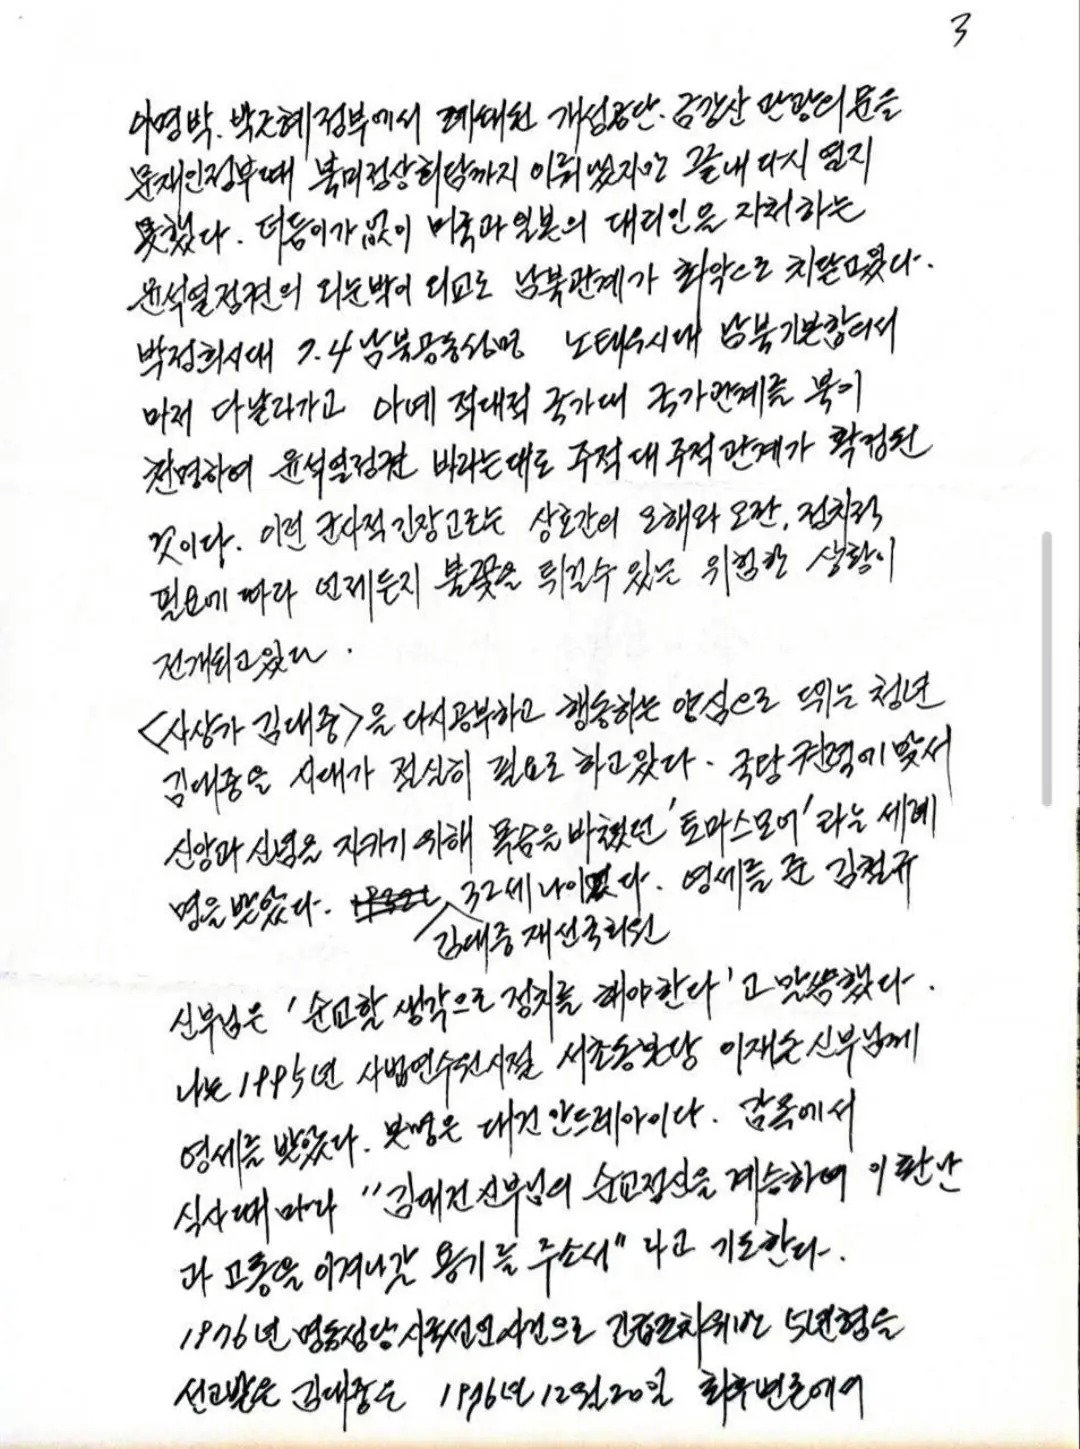 3
이명박. 박근혜정부에서 폐쇄된 개성공단. 금강산 관광의 문을
문재인정부때 북미정상회담까지 이뤄졌지만 끝내 다시 열지
못했다. 더듬이가 없이 미국과 일본의 대리인을 자처하는
윤석열정권의 외눈박이 외교로 남북관계가 최악으로 치닫고있다.
박정희시대 7.4 남북공동성명 노태우시대 남북기본합의서
마저 다 날라가고 아예 적대적 국가대 국가관계를 북이
천명하여 윤석열정권 바라는대로 주적 대 주적관계가 확정된
것이다. 이런 군사적 긴장고조는 상호간의 오해와 오판, 정치적
필요에 따라 언제든지 불꽃을 튀길수 있는 위험한 상황이
전개되고있다.
<사상가 김대중>을 다시공부하고 행동하는 양심으로 뛰는 청년
김대중을 시대가 절실히 필요로 하고있다. 국왕 권력에 맞서
신앙과 신념을 지키기 위해 목숨을 바쳤던 '토마스모어'라는 세례
명을 받았다. 32세 나이였다. 영세를 준 김철규
김대중 재선국회의원
신부님은 '순교할 생각으로 정치를 해야한다'고 말씀했다.
나는 1995년 사법연수원시절 서초동성당 이재순신부님께
영세를 받았다. 본명은 대건 안드레아이다. 감옥에서
식사때 마다 "김대건신부님의 순교정신을 계승하여 이 환난
과 고통을 이겨나갈 용기를 주소서" 라고 기도한다.
1976년 명동성당시국선언사건으로 긴급조치위반 5년형을
선고받은 김대중은 1976년 12월 20일 최후변론에서